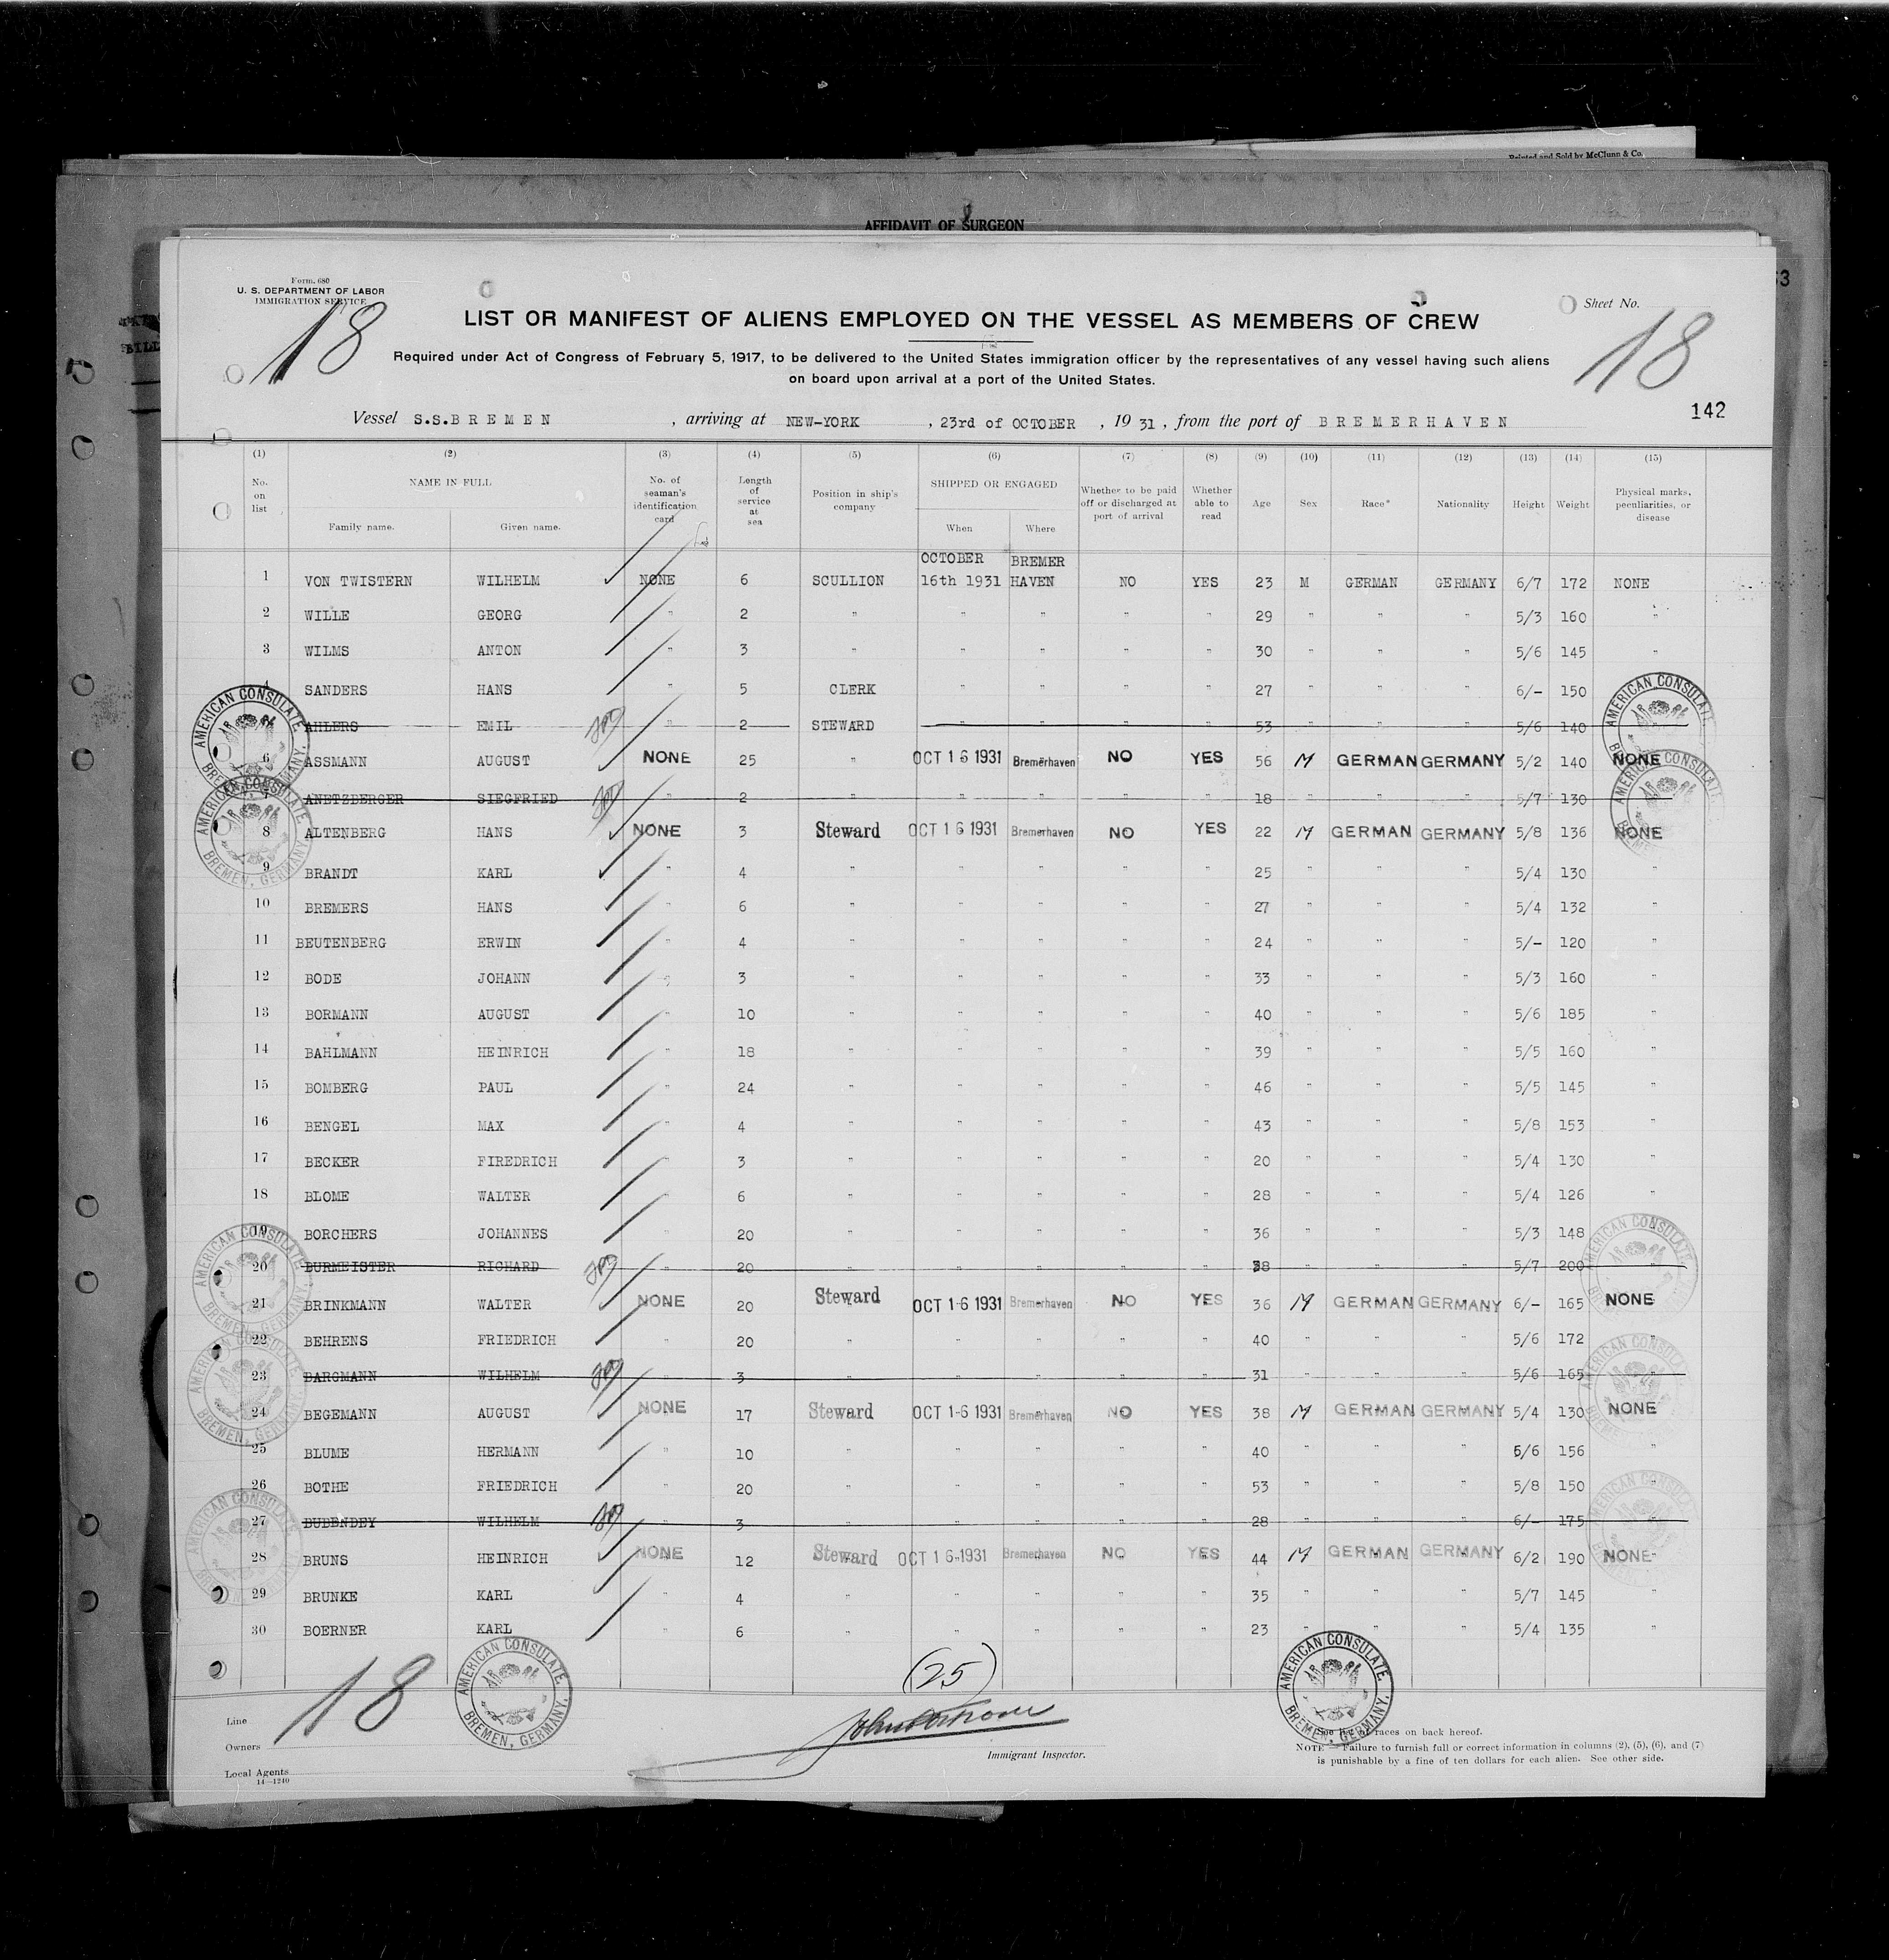 Printed and Sold by McClunn & Co.
AFFIDAVIT OF SURGEON
63
Form 680
U. S. DEPARTMENT OF LABOR
IMMIGRATION SERVICE
Sheet No.
18
18
LIST OR MANIFEST OF ALIENS EMPLOYED ON THE VESSEL AS MEMBERS OF CREW
Required under Act of Congress of February 5, 1917, to be delivered to the United States immigration officer by the representatives of any vessel having such aliens
on board upon arrival at a port of the United States.
142
Vessel S.S.BREMEN , arriving at NEW-YORK , 23rd of OCTOBER , 19 31 , from the port of BREMERHAVEN
(1) (2) (3) (4) (5) (6) (7) (8) (9) (10) (11) (12) (13) (14) (15)
No. on list NAME IN FULL Family name. Given name. No. of seaman's identification card Length of service at sea Position in ship's company SHIPPED OR ENGAGED When Where Whether to be paid off or discharged at port of arrival Whether able to read Age Sex Race* Nationality Height Weight Physical marks, peculiarities, or disease
OCTOBER BREMER
1 VON TWISTERN WILHELM NONE 6 SCULLION 16th 1931 HAVEN NO YES 23 M GERMAN GERMANY 6/7 172 NONE
2 WILLE GEORG " 2 " " " " " 29 " " " 5/3 160 "
3 WILMS ANTON " 3 " " " " " 30 " " " 5/6 145 "
4 SANDERS HANS " 5 CLERK " " " " 27 " " " 6/- 150 "
AHLERS EMIL " 2 STEWARD " " " " 53 " " " 5/6 140
6 ASSMANN AUGUST NONE 25 " OCT 16 1931 Bremerhaven NO YES 56 M GERMAN GERMANY 5/2 140 NONE
7 ANETZBERGER SIEGFRIED " 2 " " " " " 18 " " " 5/7 130
8 ALTENBERG HANS NONE 3 Steward OCT 16 1931 Bremerhaven NO YES 22 M GERMAN GERMANY 5/8 136 NONE
9 BRANDT KARL " 4 " " " " " 25 " " " 5/4 130 "
10 BREMERS HANS " 6 " " " " " 27 " " " 5/4 132 "
11 BEUTENBERG ERWIN " 4 " " " " " 24 " " " 5/- 120 "
12 BODE JOHANN " 3 " " " " " 33 " " " 5/3 160 "
13 BORMANN AUGUST " 10 " " " " " 40 " " " 5/6 185 "
14 BAHLMANN HEINRICH " 18 " " " " " 39 " " " 5/5 160 "
15 BOMBERG PAUL " 24 " " " " " 46 " " " 5/5 145 "
16 BENGEL MAX " 4 " " " " " 43 " " " 5/8 153 "
17 BECKER FIREDRICH " 3 " " " " " 20 " " " 5/4 130 "
18 BLOME WALTER " 6 " " " " " 28 " " " 5/4 126 "
19 BORCHERS JOHANNES " 20 " " " " " 36 " " " 5/3 148
20 BURMEISTER RICHARD " 20 " " " " " 38 " " " 5/7 200
21 BRINKMANN WALTER NONE 20 Steward OCT 16 1931 Bremerhaven NO YES 36 M GERMAN GERMANY 6/- 165 NONE
22 BEHRENS FRIEDRICH " 20 " " " " " 40 " " " 5/6 172 "
23 BARGMANN WILHELM " 3 " " " " " 31 " " " 5/6 165
24 BEGEMANN AUGUST NONE 17 Steward OCT 16 1931 Bremerhaven NO YES 38 M GERMAN GERMANY 5/4 130 NONE
25 BLUME HERMANN " 10 " " " " " 40 " " " 5/6 156 "
26 BOTHE FRIEDRICH " 20 " " " " " 53 " " " 5/8 150 "
27 DUBENDEY WILHELM " 3 " " " " " 28 " " " 6/- 175
28 BRUNS HEINRICH NONE 12 Steward OCT 16 1931 Bremerhaven NO YES 44 M GERMAN GERMANY 6/2 190 NONE
29 BRUNKE KARL " 4 " " " " " 35 " " " 5/7 145 "
30 BOERNER KARL " 6 " " " " " 23 " " " 5/4 135 "
AMERICAN CONSULATE, BREMEN, GERMANY.
AMERICAN CONSULATE, BREMEN, GERMANY.
AMERICAN CONSULATE, BREMEN, GERMANY.
AMERICAN CONSULATE, BREMEN, GERMANY.
AMERICAN CONSULATE, BREMEN, GERMANY.
AMERICAN CONSULATE
AMERICAN CONSULATE
AMERICAN CONSULATE
AMERICAN CONSULATE
AMERICAN CONSULATE
18
(25)
AMERICAN CONSULATE, BREMEN, GERMANY.
AMERICAN CONSULATE, BREMEN, GERMANY.
Line
Owners
Local Agents
14—1240
Immigrant Inspector.
See list of races on back hereof.
NOTE.—Failure to furnish full or correct information in columns (2), (5), (6), and (7)
is punishable by a fine of ten dollars for each alien. See other side.